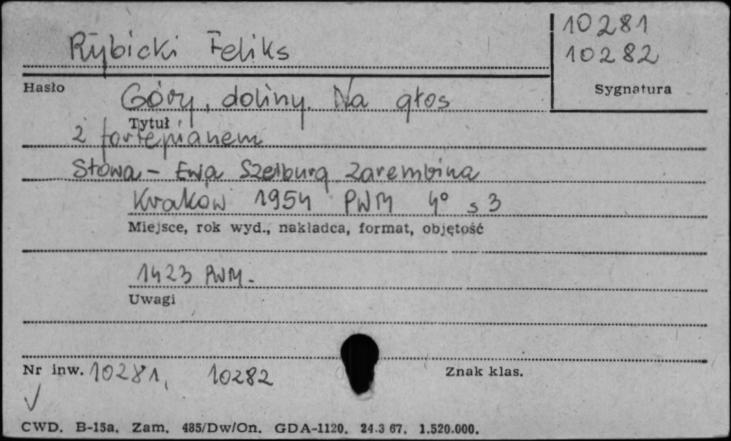 10281
Rybicki Feliks
10282
Hasło
Sygnatura
Góry, doliny. Na głos
Tytuł
z fortepianem
Słowa - Ewa Szelburg Zarembina
Kraków 1954 PWM 4° s 3
Miejsce, rok wyd., nakładca, format, objętość
1423 PWM.
Uwagi
Nr inw. 10281, 10282
Znak klas.
CWD. B-15a. Zam. 485/Dw/On. GDA-1120. 24.3 67. 1.520.000.